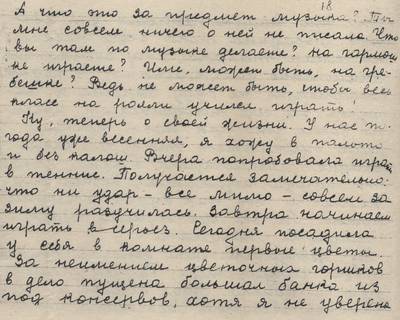 18
А что это за предмет музыка? Ты
мне совсем ничего о ней не писала. Что
вы там по музыке делаете? На гармош
ке играете? Или, может быть, на гре-
бешке? Ведь не может быть, чтобы весь
класс на рояли учился играть!
Ну, теперь о своей жизни. У нас по-
года уже весенняя, я хожу в пальто
и без калош. Вчера попробовала играть
в теннис. Получается замечательно:
что ни удар - все мимо - совсем за
зиму разучилась. Завтра начинаем
играть всерьез. Сегодня посадила
у себя в комнате первые цветы.
За неимением цветочных горшков
в дело пущена большая банка из
под консервов, хотя я не уверена